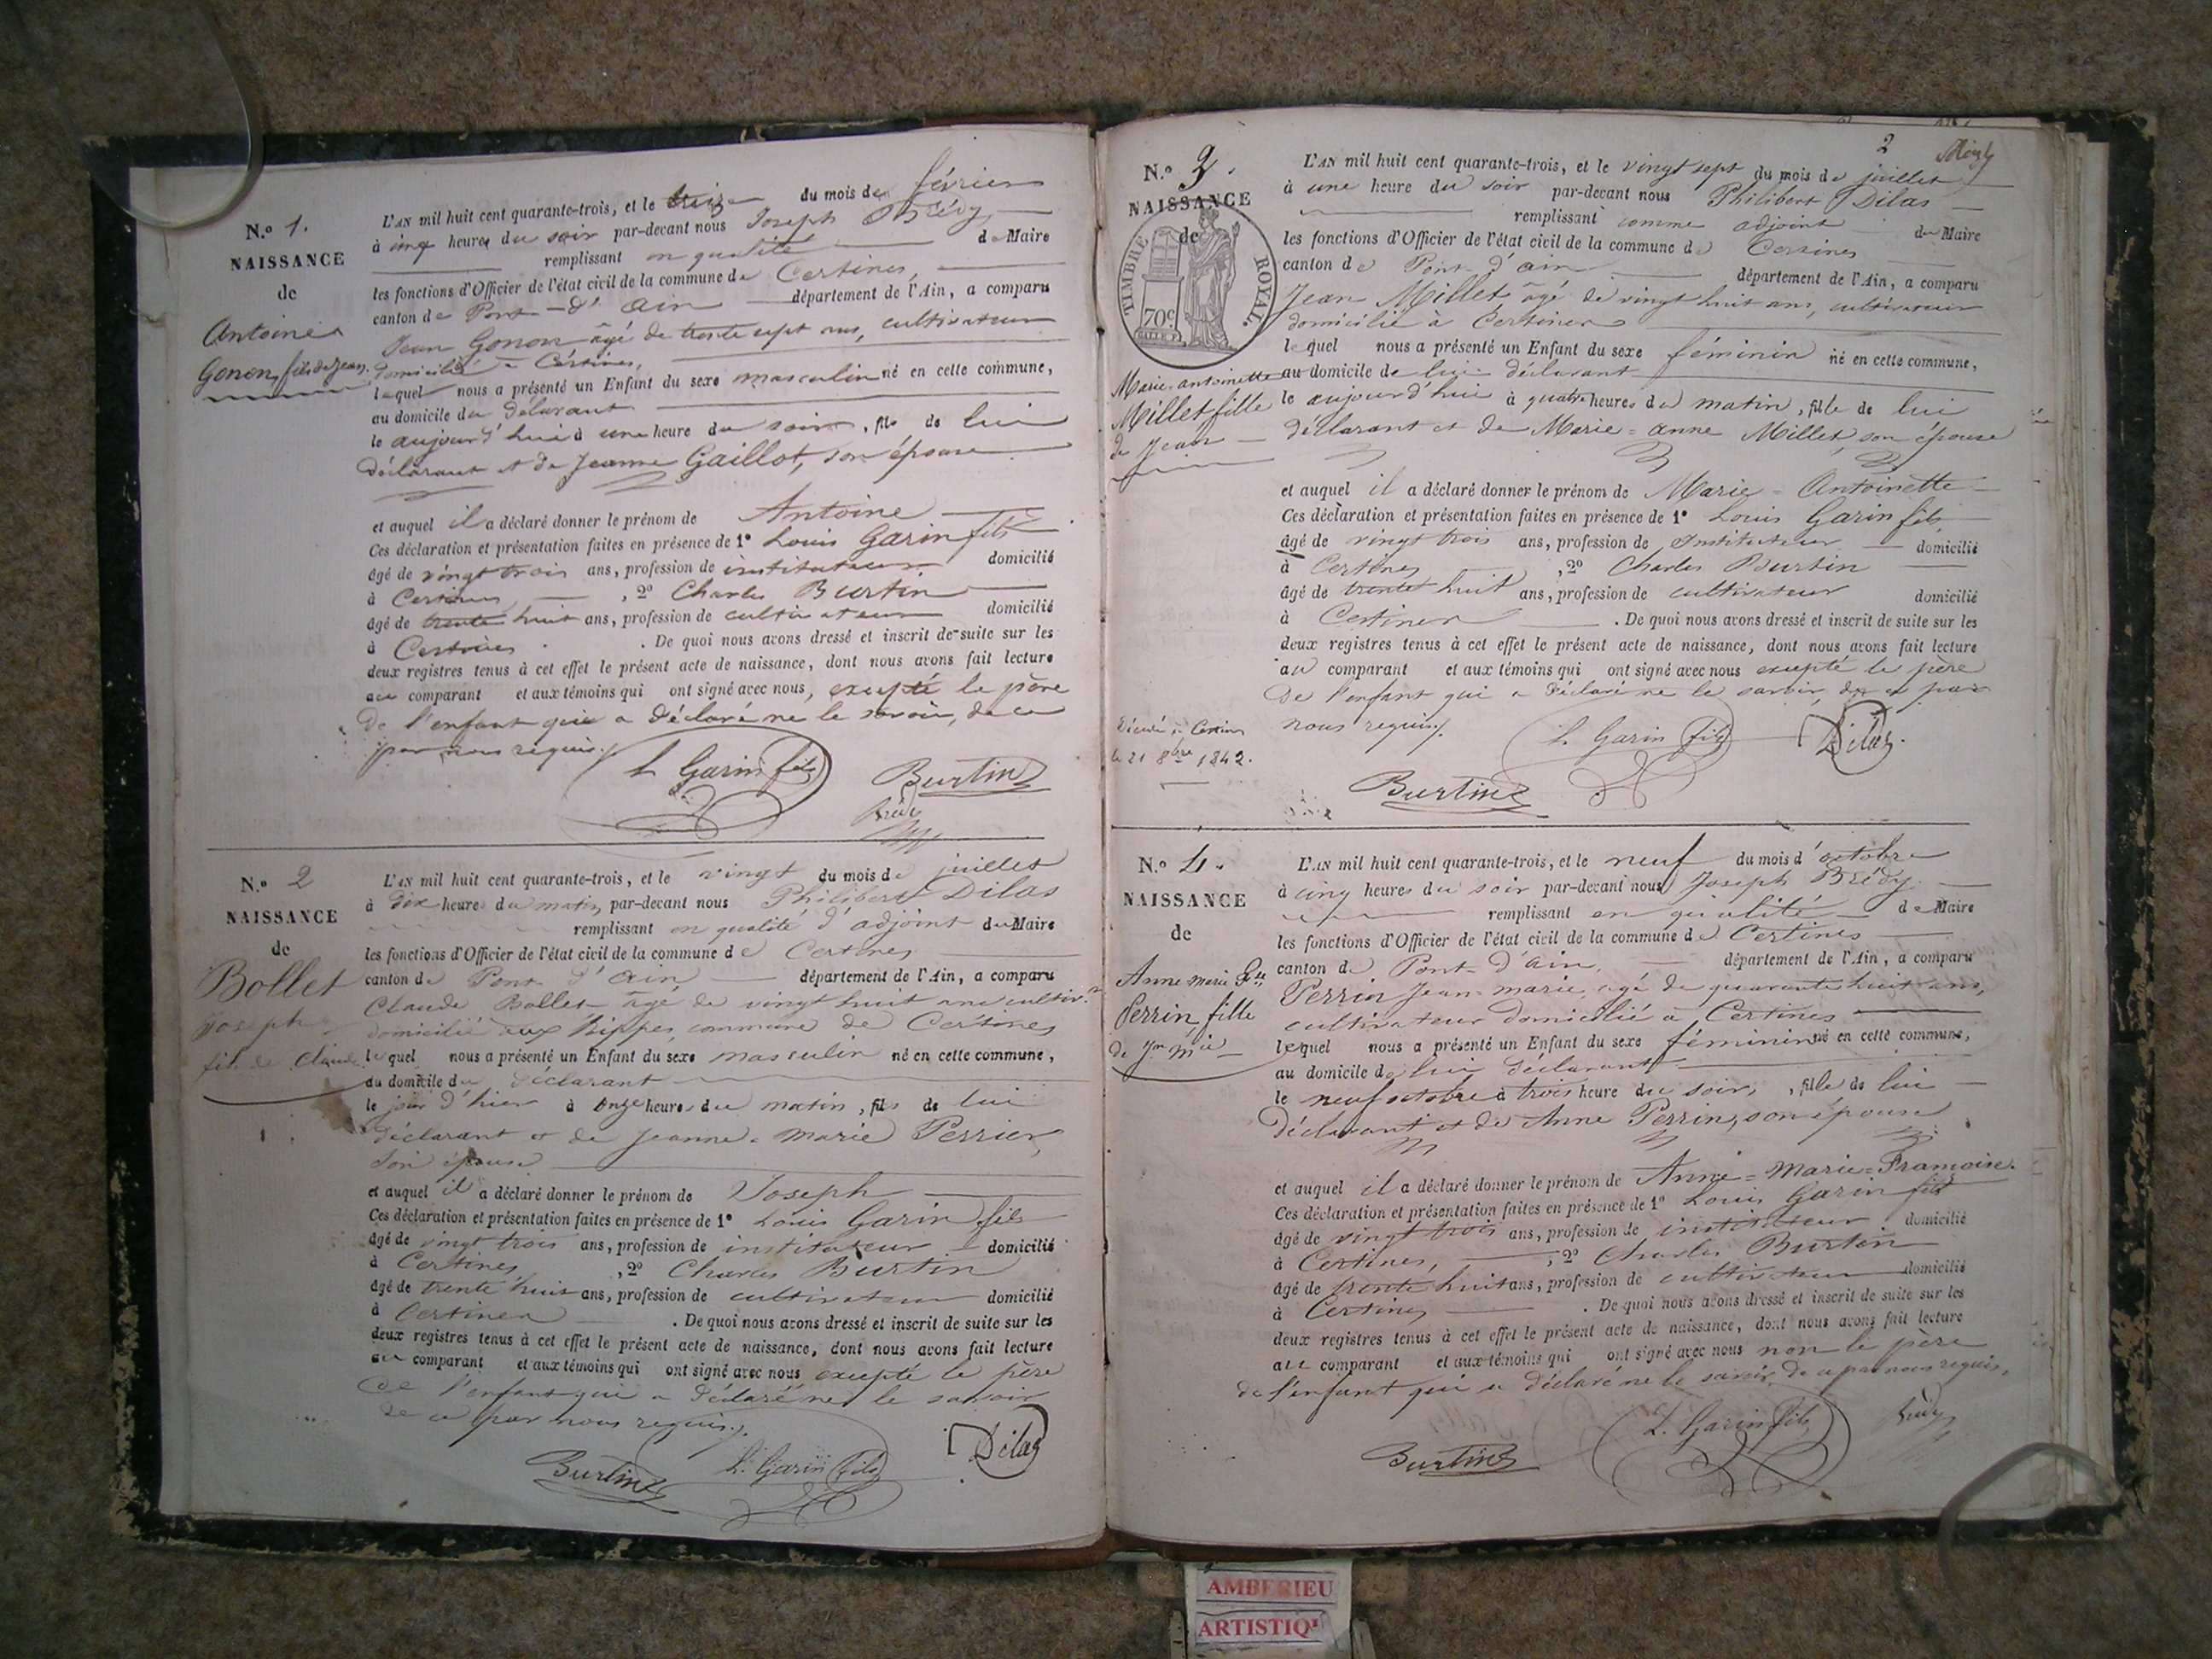 N.º 1.
NAISSANCE
de
Antoine
Gonon, fils de Jean.
L'AN mil huit cent quarante-trois, et le treize du mois de février
à cinq heures du soir par-devant nous Joseph Brédy
remplissant en qualité de Maire
les fonctions d'Officier de l'état civil de la commune de Certines,
canton de Pont-d'ain département de l'Ain, a comparu
Jean Gonon âgé de trente sept ans, cultivateur
domicilié à Certines,
lequel nous a présenté un Enfant du sexe masculin né en cette commune,
au domicile du déclarant
le aujourd'hui à une heure du soir, fils de lui
déclarant et de Jeanne Gaillot, son épouse
et auquel il a déclaré donner le prénom de Antoine
Ces déclaration et présentation faites en présence de 1º Louis Garin fils
âgé de vingt trois ans, profession de instituteur domicilié
à Certines, 2º Charles Burtin
âgé de trente huit ans, profession de cultivateur domicilié
à Certines. De quoi nous avons dressé et inscrit de suite sur les
deux registres tenus à cet effet le présent acte de naissance, dont nous avons fait lecture
au comparant et aux témoins qui ont signé avec nous, excepté le père
de l'enfant qui a déclaré ne le savoir, de ce
par nous requis./.
L Garin fils
Burtin
Brédy
N.º 2
NAISSANCE
de
Bollet
Joseph
fils de Claude
L'AN mil huit cent quarante-trois, et le vingt du mois de juillet
à dix heures du matin par-devant nous Philibert Dilas
remplissant en qualité d'adjoint du Maire
les fonctions d'Officier de l'état civil de la commune de Certines
canton de Pont d'ain département de l'Ain, a comparu
Claude Bollet âgé de vingt huit ans cultiv.r
domicilié aux hippes, commune de Certines
lequel nous a présenté un Enfant du sexe masculin né en cette commune,
au domicile du déclarant
le jour d'hier à onze heures du matin, fils de lui
déclarant et de Jeanne-Marie Perrier,
son épouse
et auquel il a déclaré donner le prénom de Joseph
Ces déclaration et présentation faites en présence de 1º Louis Garin fils
âgé de vingt trois ans, profession de instituteur domicilié
à Certines, 2º Charles Burtin
âgé de trente huit ans, profession de cultivateur domicilié
à Certines. De quoi nous avons dressé et inscrit de suite sur les
deux registres tenus à cet effet le présent acte de naissance, dont nous avons fait lecture
au comparant et aux témoins qui ont signé avec nous excepté le père
de l'enfant qui a déclaré ne le savoir
de ce par nous requis./.
Burtin
L. Garin fils
Dilas
2
N.º 3.
NAISSANCE
de
TIMBRE ROYAL.
70c
Marie-antoinette
Millet fille
de Jean
Décédée à Certines
le 21 8bre 1843.
L'AN mil huit cent quarante-trois, et le vingt sept du mois de juillet
à une heure du soir par-devant nous Philibert Dilas
remplissant comme adjoint du Maire
les fonctions d'Officier de l'état civil de la commune de Certines
canton de Pont d'ain département de l'Ain, a comparu
Jean Millet âgé de vingt huit ans, cultivateur
domicilié à Certines
lequel nous a présenté un Enfant du sexe féminin né en cette commune,
au domicile de lui déclarant
le aujourd'hui à quatre heures du matin, fille de lui
déclarant et de Marie-anne Millet, son épouse
et auquel il a déclaré donner le prénom de Marie-Antoinette
Ces déclaration et présentation faites en présence de 1º Louis Garin fils
âgé de vingt trois ans, profession de Instituteur domicilié
à Certines, 2º Charles Burtin
âgé de trente huit ans, profession de cultivateur domicilié
à Certines. De quoi nous avons dressé et inscrit de suite sur les
deux registres tenus à cet effet le présent acte de naissance, dont nous avons fait lecture
au comparant et aux témoins qui ont signé avec nous excepté le père
de l'enfant qui a déclaré ne le savoir, de ce par
nous requis./.
L. Garin fils
Dilas.
Burtin
N.º 4.
NAISSANCE
de
Anne marie F.se
Perrin fille
de Jn Mie
L'AN mil huit cent quarante-trois, et le neuf du mois d'octobre
à cinq heures du soir par-devant nous Joseph Brédy
remplissant en qualité de Maire
les fonctions d'Officier de l'état civil de la commune de Certines
canton de Pont-d'ain, département de l'Ain, a comparu
Perrin Jean-marie, âgé de quarante huit ans,
cultivateur domicilié à Certines
lequel nous a présenté un Enfant du sexe féminin né en cette commune,
au domicile de lui déclarant
le neuf octobre à trois heure du soir, fille de lui
déclarant et de Anne Perrin, son épouse
et auquel il a déclaré donner le prénom de Anne-Marie-Françoise.
Ces déclaration et présentation faites en présence de 1º Louis Garin fils
âgé de vingt trois ans, profession de instituteur domicilié
à Certines, 2º Charles Burtin
âgé de trente huit ans, profession de cultivateur domicilié
à Certines. De quoi nous avons dressé et inscrit de suite sur les
deux registres tenus à cet effet le présent acte de naissance, dont nous avons fait lecture
au comparant et aux témoins qui ont signé avec nous non le père
de l'enfant qui a déclaré ne le savoir de ce par nous requis.
L. Garin fils
Brédy
Burtin
AMBERIEU
ARTISTIQ